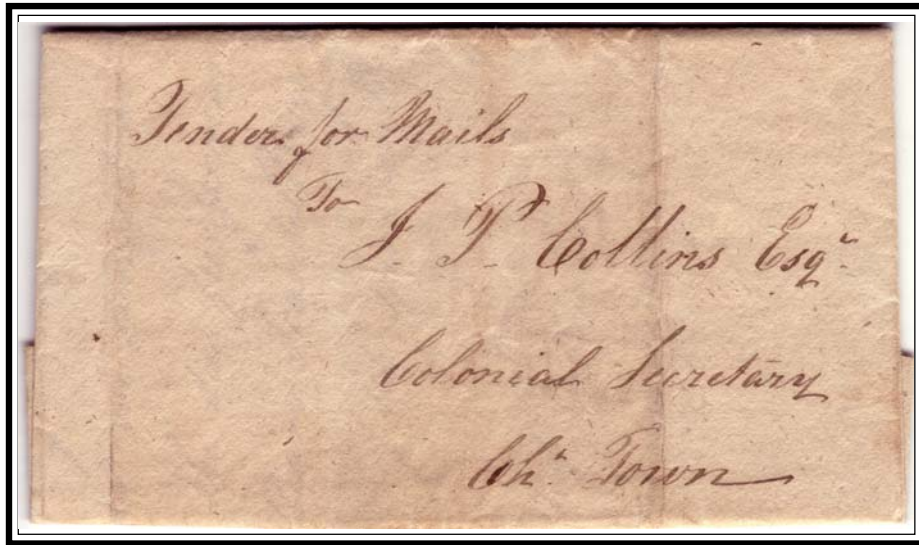 Tender for Mails
To
J. P. Collins Esqr
Colonial Secretary
Ch. Town